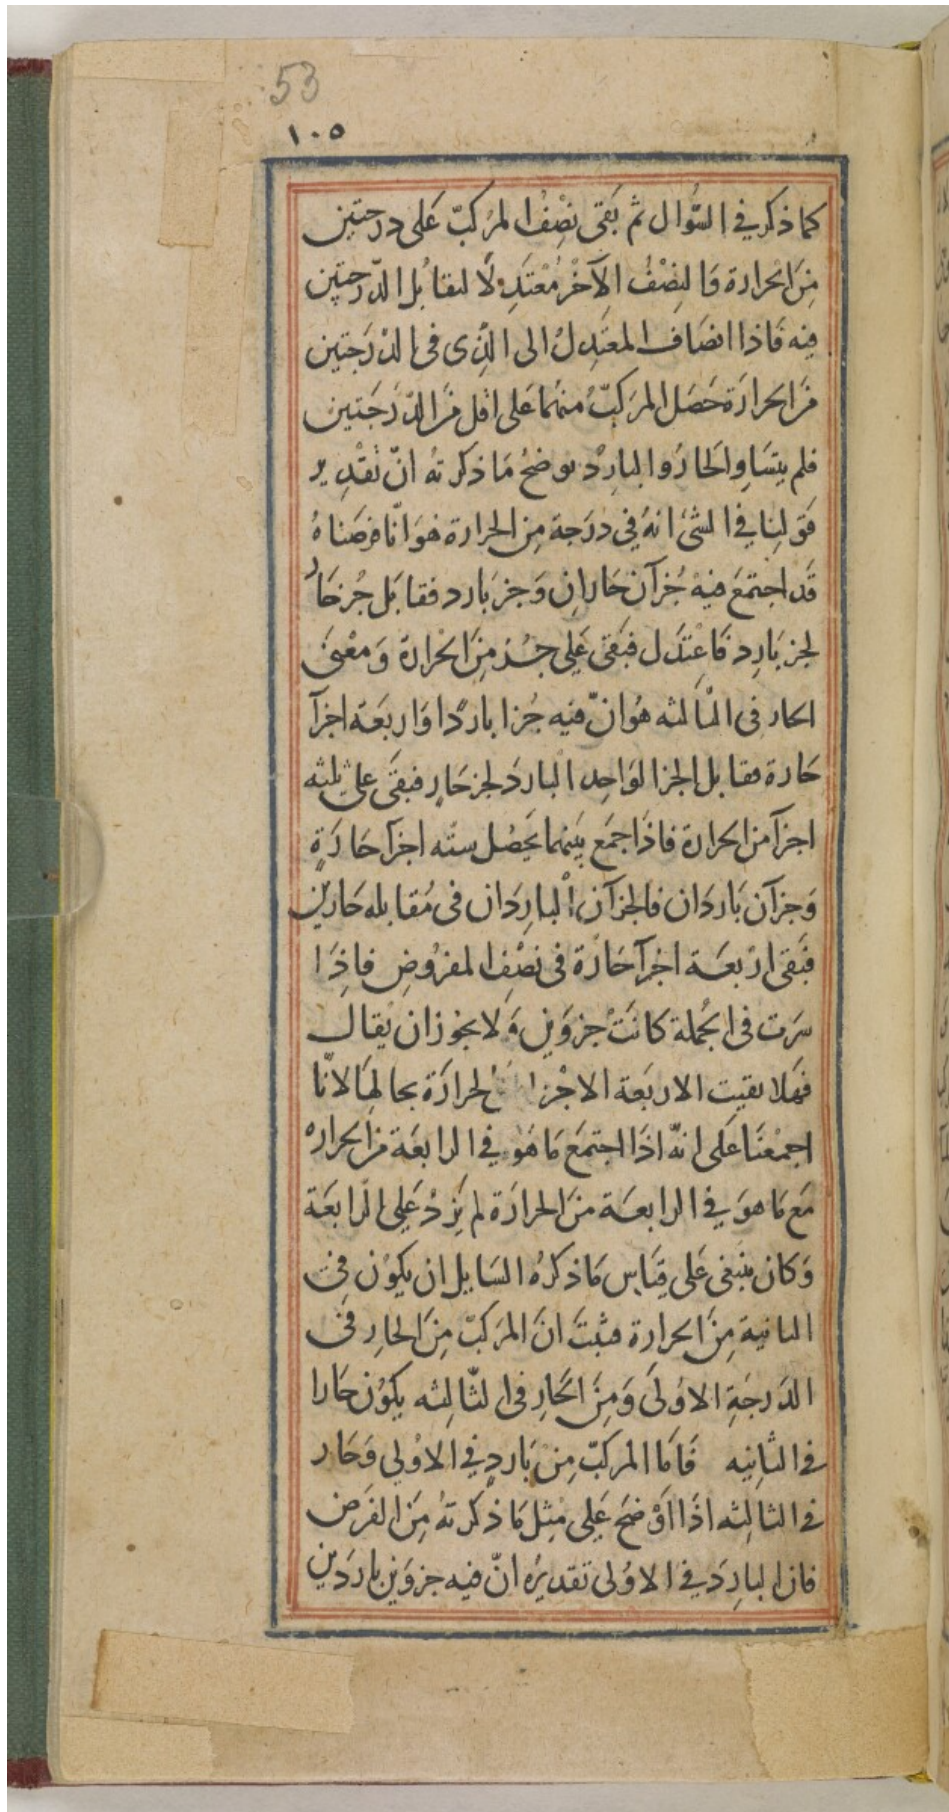 53
١٠٥
كما ذكر في السُّوال ثم بَقى نِصْفُ المركبّ عَلى درجتين
مِنَ الحَرارة وَالنِصْفُ الآخرُ مُعْتَدِلًا لتقابُل الدّرجتين
فيه فَاذا انضَاف المعتَدِلُ الى الّذِى فى الدّرَجتين
مَن الحَرارَة حَصَل المركبّ منهمَا عَلى اقل مَن الدّرَجَتين
فلم يتسَاوِ الحَارُ والبارِدُ يوضحُ مَا ذكرتهُ انّ تقْدِير
قَولِنا في الشئ انهُ في دَرَجة مِن الحرارة هوَ انّا فرضناهُ
قَد اجتمَعَ فيهْ جُزآن حَارانِ وَجز بَارد فقابَل جُز حَارُ
لجز بَارِد فَاعْتدَل فبَقى عَلى جُز مِنَ الحَرارة وَمعْنى
الحار فى الثَالثه هُو انّ فيه جُزا باردًا وَاربَعَة اجزآ
حَارة فقابل الجزالوَاحِد الباردَ لجز حَارٍ فبقىَ على ثلثه
اجزآ من الحرارة فاذَا جمَع بينهما يَحصُل ستّه اجزآ حَارَةٍ
وَجزآن بَاردَان فالجزآن البارِدَان فى مُقابله حَارين
فبَقى ارْبعَة اجزآ حَارَة فى نصْف المفرُوض فاذَا
سَرت فى الجُملة كانَتْ جزوَين وَلا يجوزان يُقال
فهَلا بقيت الاربَعة الاجْزا الحَرارَة بحالهَا لانّا
اجمْعنَا عَلى انهّ اذَا اجتمَعَ مَا هَوَ في الرابعَة مَن الحراره
مَع مَا هوَ في الرابعَة منَ الحرارَة لم يَزِدْ عَلى الرابعَة
وَكان ينبَغى عَلى قيَاس مَا ذكرهُ السَايل ان يكوُن فى
الثانية مِنَ الحرارة فثبتَ انَ المرَكبّ مِنَ الحارِ فى
الدَرجَةِ الاولَى وَمِنَ الحَارِ فى الثّالِثه يكوُن حَارا
في الثّانِيه فَامَا المركبّ مِن بَاردٍ في الاوُلى وَحَار
في الثالِثه اذَا اوْضحَ عَلى مثِل مَا ذكرتهُ مِنَ الفرَض
فان البارِدَ في الاوُلى تقديرُه انّ فيه جزوَين بارِدَين